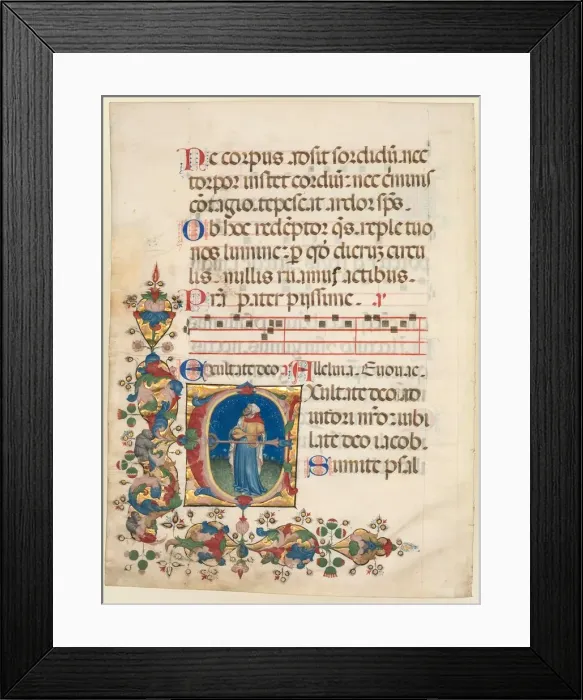 Ne corpus adsit sordidũ. nec
torpor instet cordiũ: nec criminis
cõtagio. tepescat ardor sp̃s.
Ob hoc redẽptor q̃s. reple tuo
nos lumine: p qõ dieruʒ circu
lis. nullis ruamus actibus.
Prã pater pijssime.
Exultate deo Alleluia. Evovae.
Exultate deo ad
iutori nr̃o: iubi
late deo iacob.
Sumite psal